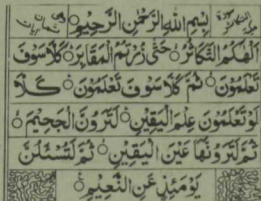 بِسْمِ اللهِ الرَّحْمٰنِ الرَّحِيْمِ
اَلْهٰكُمُ التَّكَاثُرُ حَتّٰى زُرْتُمُ الْمَقَابِرَ كَلَّا سَوْفَ
تَعْلَمُوْنَ ثُمَّ كَلَّا سَوْفَ تَعْلَمُوْنَ كَلَّا
لَوْ تَعْلَمُوْنَ عِلْمَ الْيَقِيْنِ لَتَرَوُنَّ الْجَحِيْمَ
ثُمَّ لَتَرَوُنَّهَا عَيْنَ الْيَقِيْنِ ثُمَّ لَتُسْئَلُنَّ
يَوْمَئِذٍ عَنِ النَّعِيْمِ